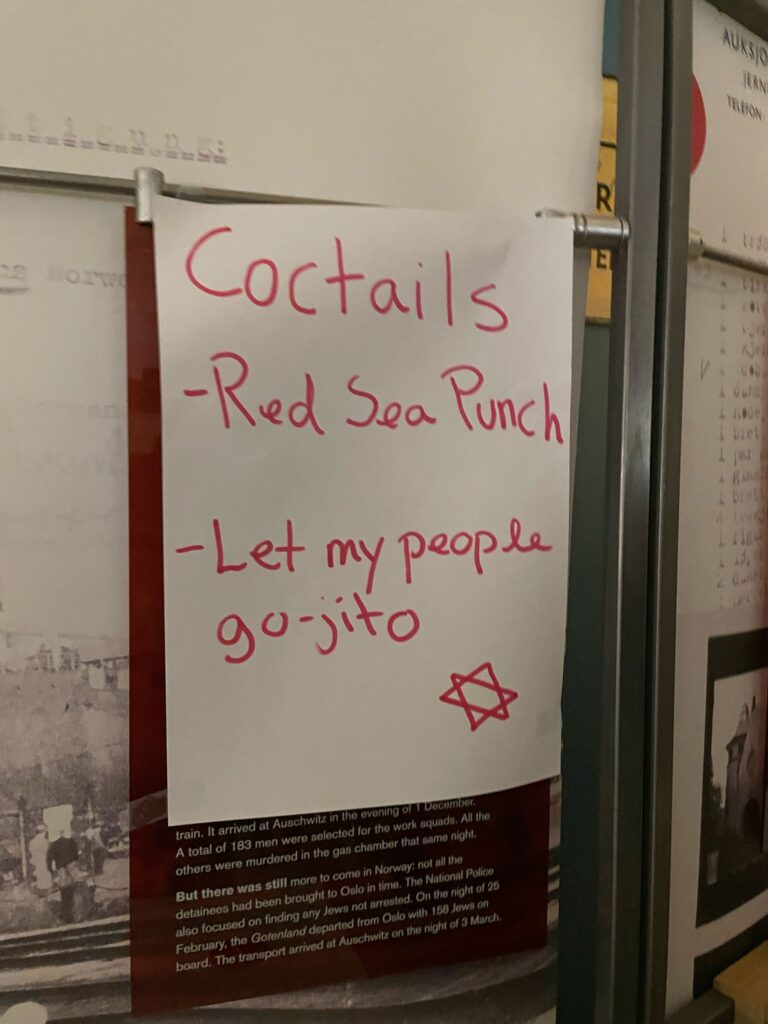 AUKSJO
JERN
TELEFON
Coctails
-Red Sea Punch
-Let my people
go-jito
train. It arrived at Auschwitz in the evening of 1 December.
A total of 183 men were selected for the work squads. All the
others were murdered in the gas chamber that same night.
But there was still more to come in Norway: not all the
detainees had been brought to Oslo in time. The National Police
also focused on finding any Jews not arrested. On the night of 25
February, the Gotenland departed from Oslo with 158 Jews on
board. The transport arrived at Auschwitz on the night of 3 March.